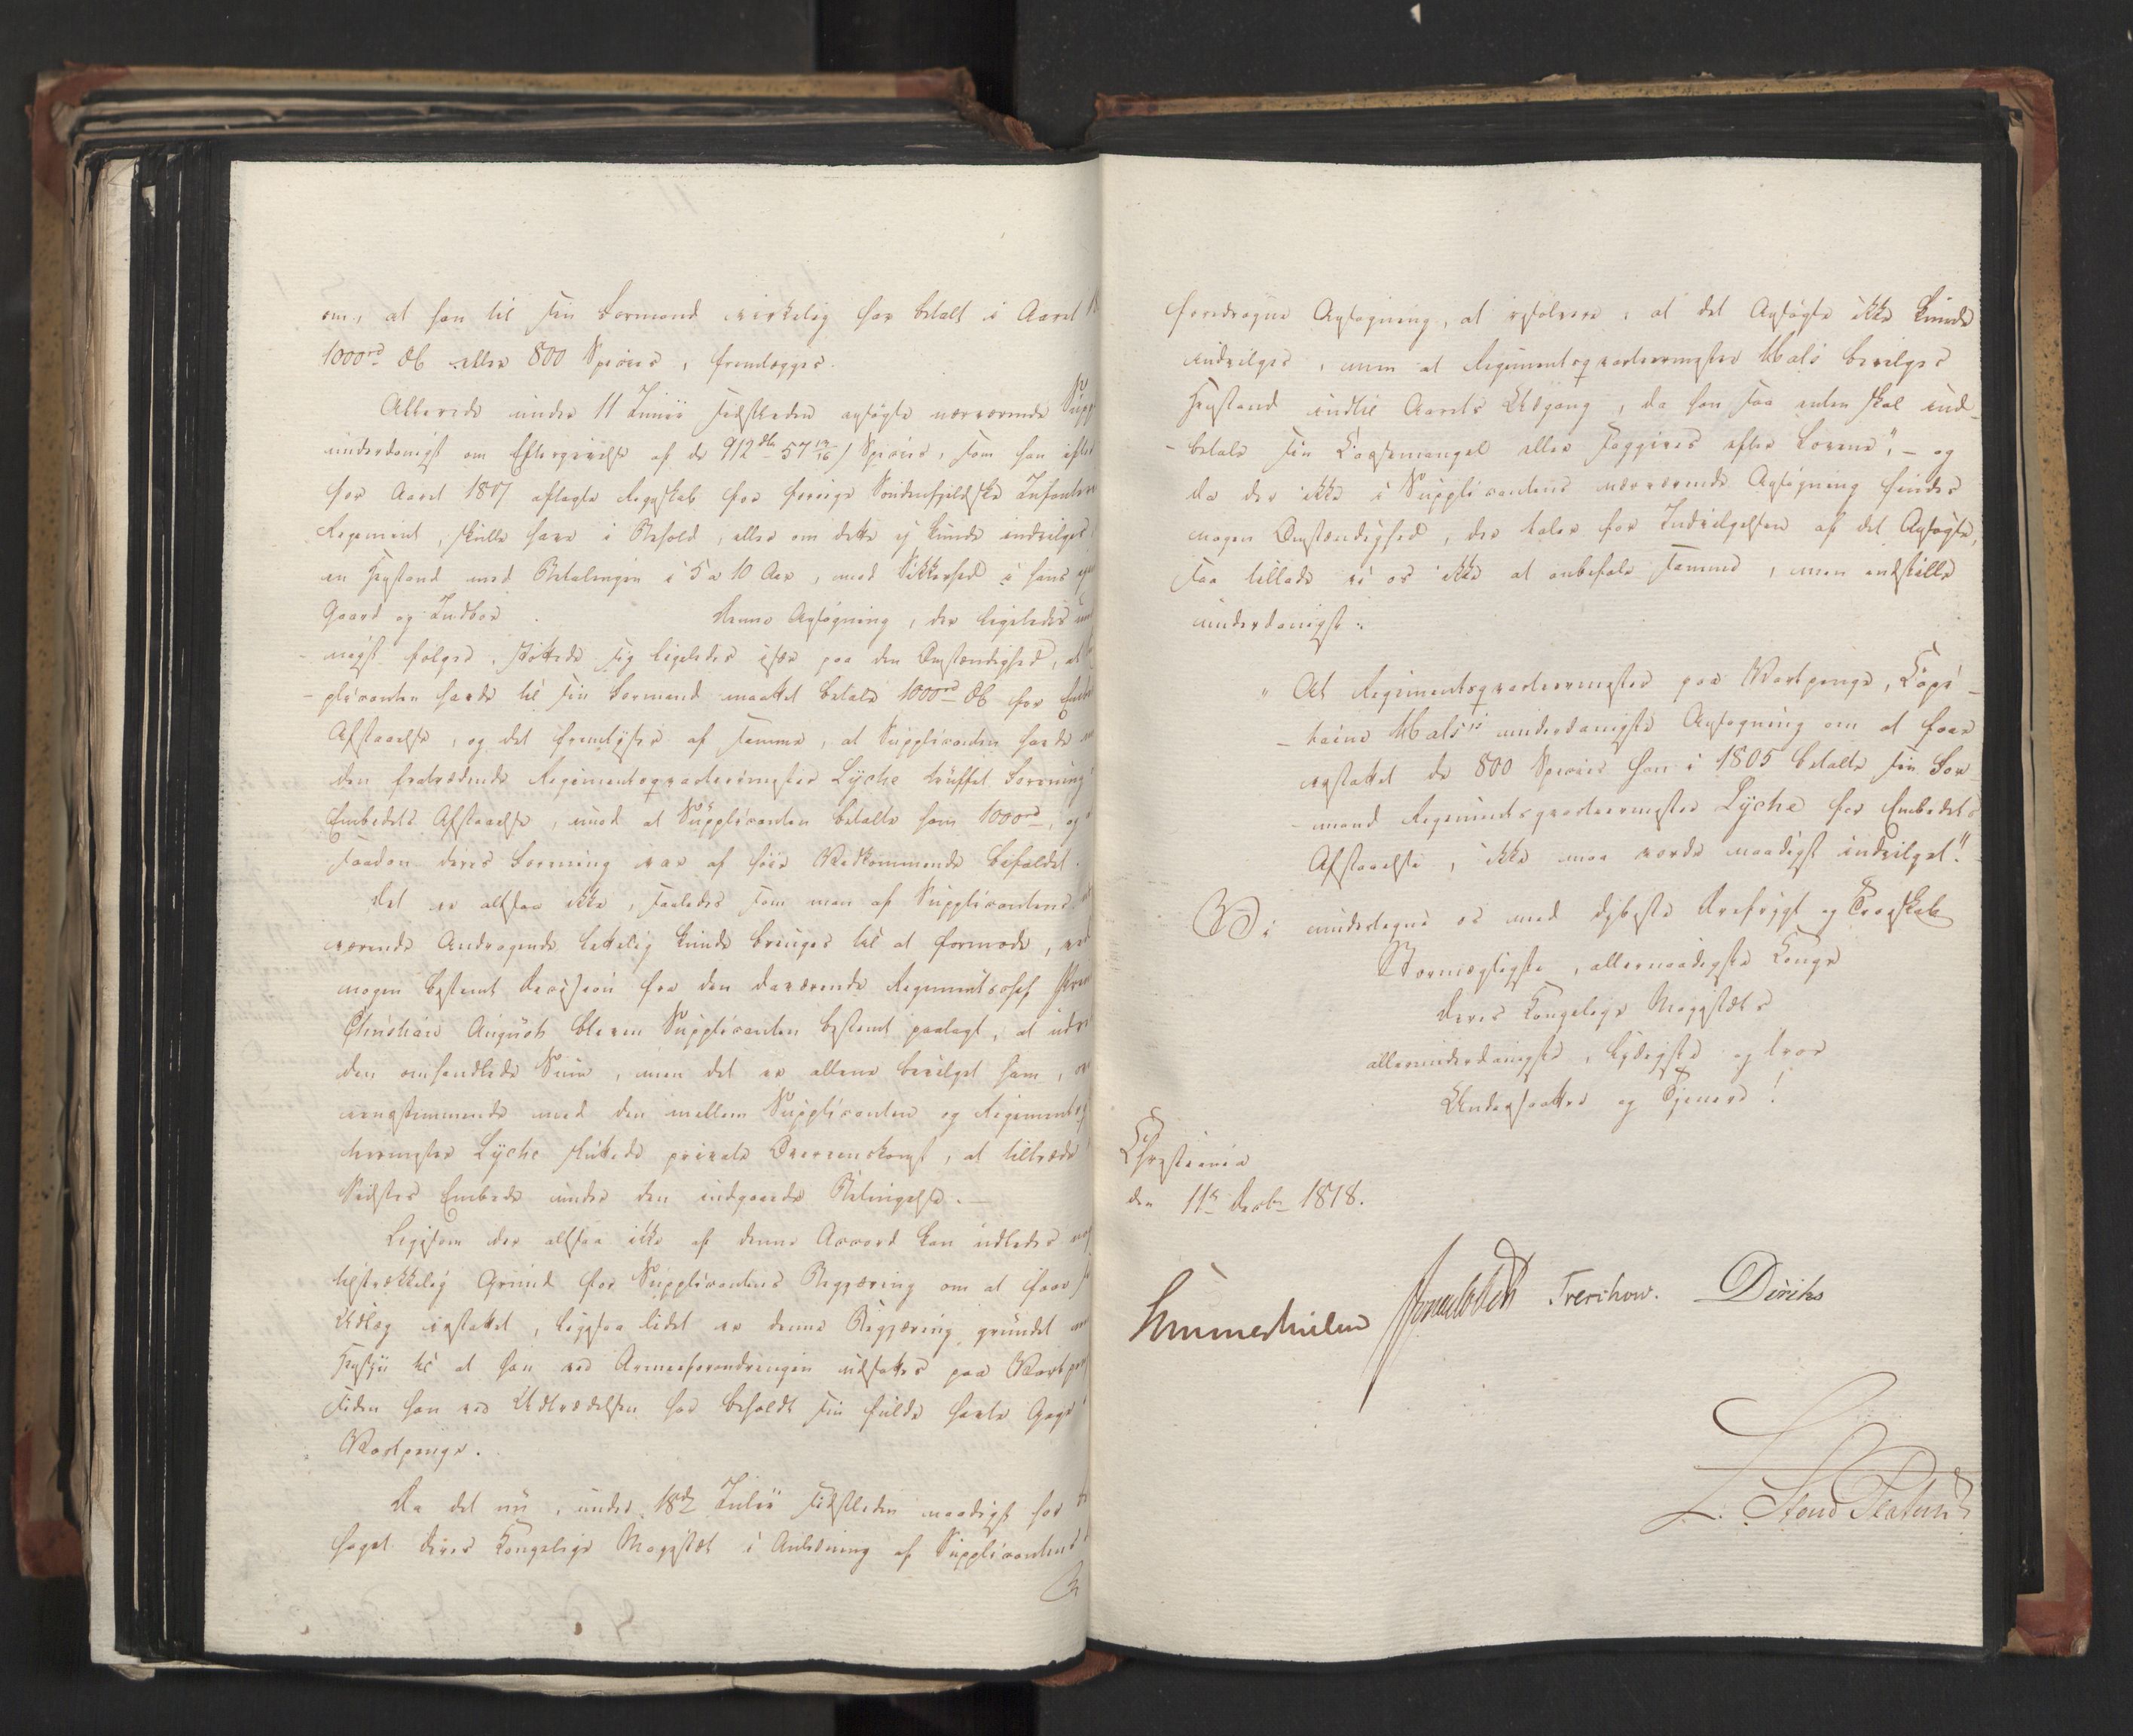 om, at han til sin Formand virkelig har betalt i Aaret 18
1000rd DC eller 800 Species, fremlægges.
Allerede under 11 Junii sidstleden ansøgte nærværende Supp
underdanigst om Eftergivelse af de 912 57 19/16 s Species, som han efter
for Aaret 1817 aflagte Regnskab for forrige Søndenfjeldske Infanterie
Regiment, skulle have i Behold, eller om dette ej kunde indvilges
en Henstand med Betalingen i 5 a 10 Aar, mod Sikkerhed i hans
Gaard og Indboe. Denne Ansøgning, der ligeledes un
nigst følger, støttede sig ligeledes især paa den Omstændighed, at
plicanten havde til sin Formand maattet betale 1000rd DC for Embe
Afstaaelse, og det fremlyser af samme, at Supplicanten havde
den fratrædende Regimentsqvarteermester Lyche truffet Forening
Embedets Afstaaelse, imod at Supplicanten betalte ham 1000rd, og
saadan deres Forening var af høie Vedkommende bifaldet.
Det er altsaa ikke, saaledes som man af Supplicantens
værende Andragende lettelig kunde bringes til at formode, ved
nogen bestemt Decision fra den daværende Regimentschef Prin
Christian August bleven Supplicanten bestemt paalagt, at udre
den omhandlede Sum, men det er allene bevilget ham, ov
eensstemmende med den mellem Supplicanten og Regimentsq
teermester Lyche sluttede private Overenskomst, at tiltræde
Sidstes Embede under den indgaaede Betingelse. —
Ligesom der altsaa ikke af denne Accord kan udledes no
tilstrækkelig Grund for Supplicantens Begjæring om at faae s
Udlæg erstattet, ligesaa lidet er denne Begjæring grundet
Hensyn til at han ved Armeeforandringen udsattes paa Vartpen
siden han ved Udtrædelsen har beholdt sin fulde havte Gage i
Vartpenge.
Da det nu, under 18de Julii sidstleden naadigst har
haget Deres Kongelige Majestæt i Anledning af Supplicantens
foredragne Ansøgning, at resolvere: at det Ansøgte ikke kunde
indvilges, men at Regimentsqvarteermester Mals bevilges
Henstand indtil Aarets Udgang, da han saa enten skal ind-
- betale sin Cassemangel eller søggives efter Lovene", – og
da der ikke i Supplicantens nærværende Ansøgning findes
nogen Omstændighed, der taler for Indvilgelsen af det Ansøgte,
saa tillade vi os ikke at anbefale samme, men indstille
underdanigst:
" At Regimentsqvarteermester paa Vartpenge, Capi-
- taine Mals's underdanigste Ansøgning om at faae
erstattet de 800 Species han i 1805 betalte sin For-
- mand Regimentsqvarteermester Lyche for Embedets
Afstaaelse, ikke maa vorde naadigst indvilget".
Vi undertegne os med dybeste Ærefrygt og Troeskab
Stormægtigste, allernaadigste Konge
Deres Kongelige Majestæts
allerunderdanigste, lydigste og troe
Undersaatter og Tjenere!
Christiania
den 11te Decbr 1818.
Sommerhielm Treschow. Diriks
L: Stoud Platou